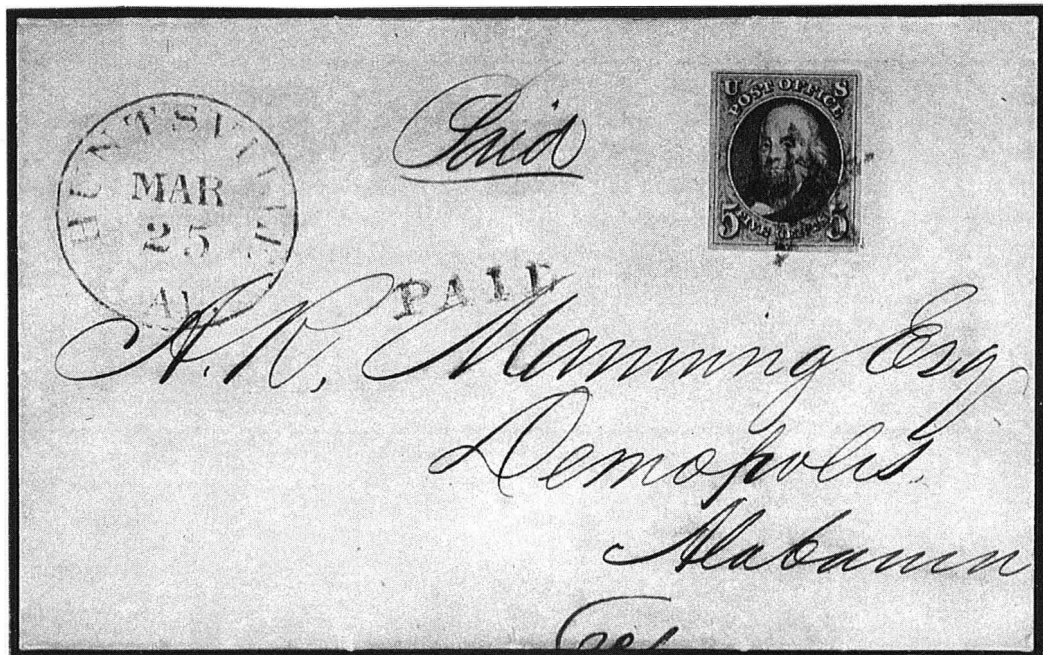 HUNTSVILLE
MAR
25
Al
Paid
U S
POST OFFICE
5 FIVE CENTS 5
PAID
A. R. Manning Esq
Demopolis.
Alabama